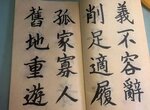 義不容辭
削足適履
孤家寡人
舊地重遊